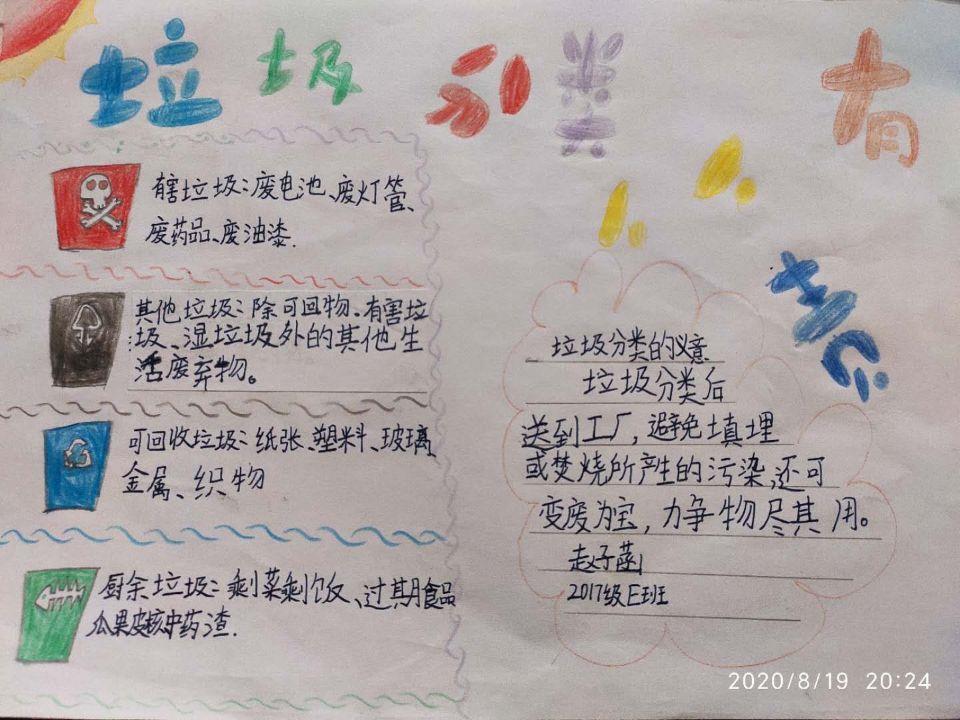 垃圾分类 有
有害垃圾:废电池、废灯管、
废药品、废油漆.
其他垃圾:除可回物、有害垃
圾、湿垃圾外的其他生
活废弃物。
可回收垃圾:纸张、塑料、玻璃
金属、织物
厨余垃圾:剩菜剩饭、过期食品
瓜果皮核、中药渣.
垃圾分类的义意
垃圾分类后
送到工厂,避免填埋
或焚烧所产生的污染,还可
变废为宝,力争物尽其用。
赵子菡
2017级E班
2020/8/19 20:24